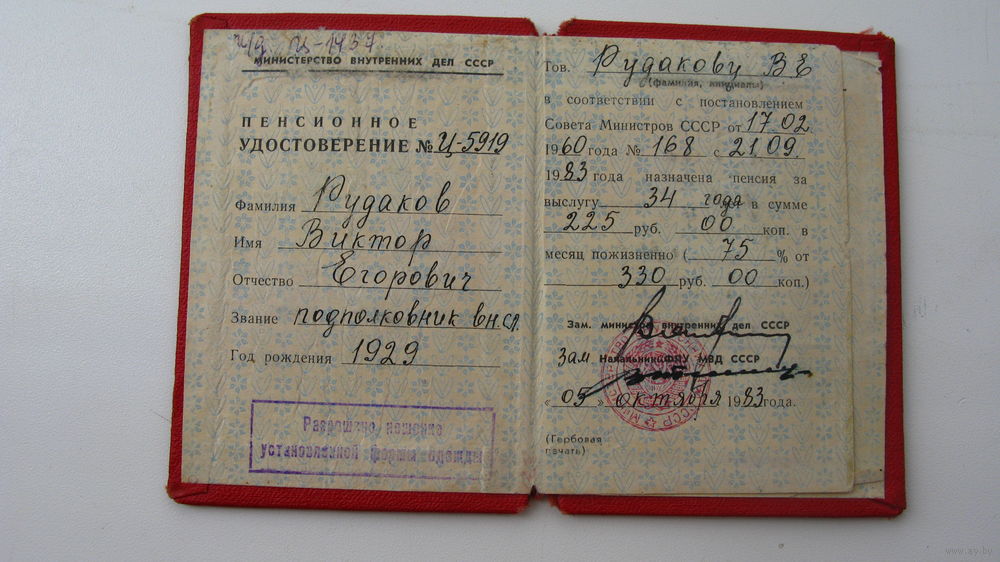 и/д Ц-1437
МИНИСТЕРСТВО ВНУТРЕННИХ ДЕЛ СССР
ПЕНСИОННОЕ
УДОСТОВЕРЕНИЕ № Ц-5919
Фамилия Рудаков
Имя Виктор
Отчество Егорович
Звание подполковник вн.сл.
Год рождения 1929
Разрешено ношение
установленной формы одежды
Тов. Рудакову В Е
(фамилия, инициалы)
в соответствии с постановлением
Совета Министров СССР от 17.02.
1960 года № 168 с 21.09.
1983 года назначена пенсия за
выслугу 34 года в сумме
225 руб. 00 коп. в
месяц пожизненно ( 75 % от
330 руб. 00 коп.)
Зам. министра внутренних дел СССР
зам Начальника ФПУ МВД СССР
« 05 » октября 1983 года.
(Гербовая
печать)
www.ay.by